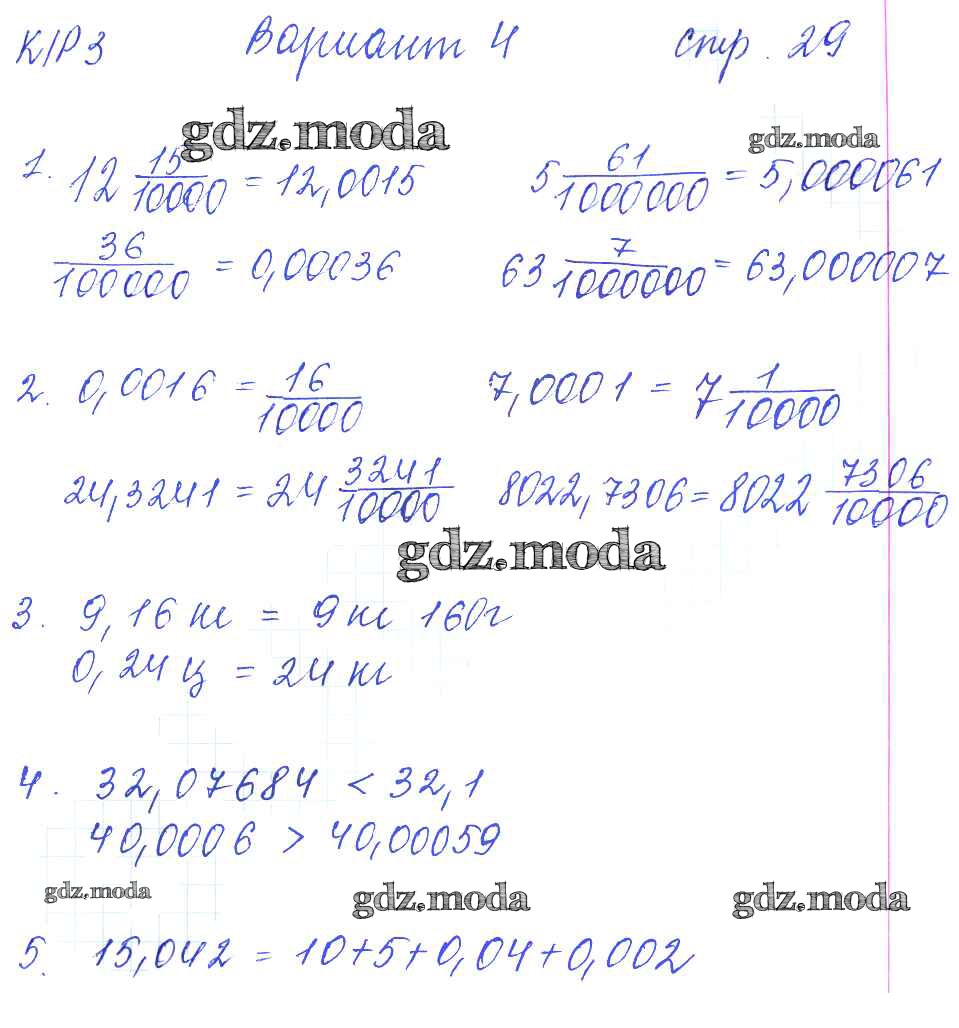 К/Р 3 Вариант 4 стр. 29
gdz.moda gdz.moda
1. 12 15/10000 = 12,0015 5 61/1000000 = 5,000061
36/100000 = 0,00036 63 7/1000000 = 63,000007
2. 0,0016 = 16/10000 7,0001 = 7 1/10000
24,3241 = 24 3241/10000 8022,7306 = 8022 7306/10000
gdz.moda
3. 9,16 кг = 9 кг 160г
0,24 ц = 24 кг
4. 32,07684 < 32,1
40,0006 > 40,00059
gdz.moda gdz.moda gdz.moda
5. 15,042 = 10+5+0,04+0,002